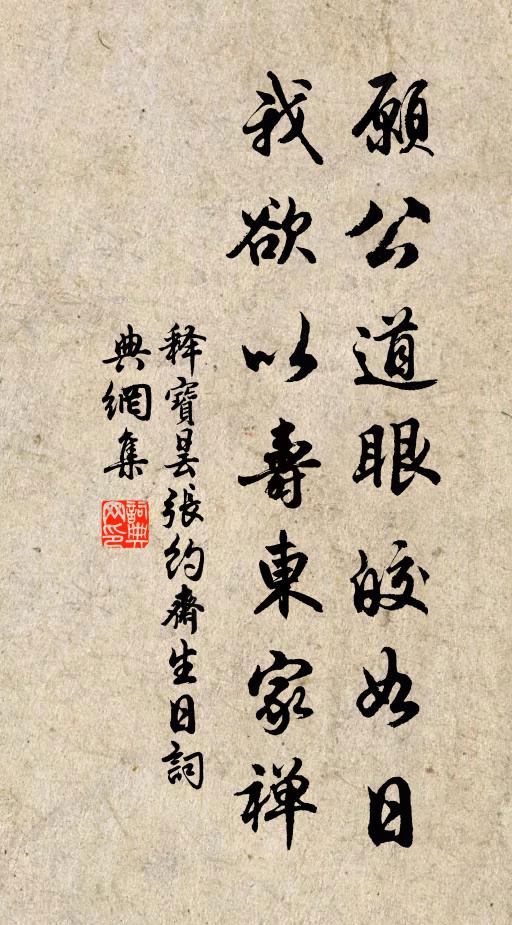 願公道眼皎如日
我欲以壽東家禅
释寶昙張約齋生日詞
典網集
詞典网印